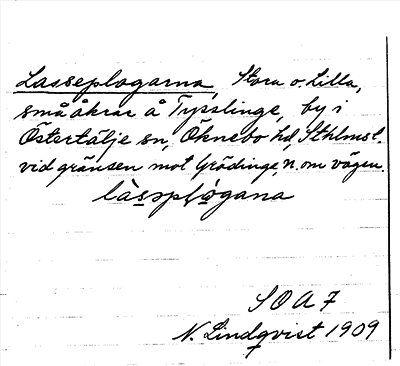 Lasseplogarna, Stora o. Lilla,
små åkrar å Tysslinge, by i
Östertälje sn, Öknebo hd, Sthlms l.
vid gränsen mot Grödinge, n. om vägen.
làsspḷógana
S O A 7
N. Lindqvist 1909